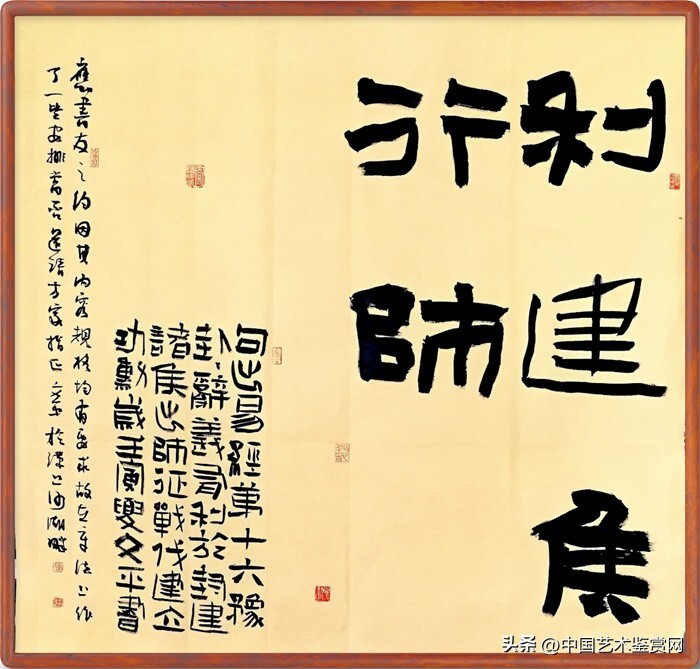 利建侯
行師
句出易經第十六豫
卦辭義有利於封建
諸侯出師征戰伐建立
功勳歲壬寅叟文平書
應書友之約因其內容規格均有要求故在章法上作
了一些安排當否還請方家指正文平於上湖畔
头条 @中国艺术鉴赏网